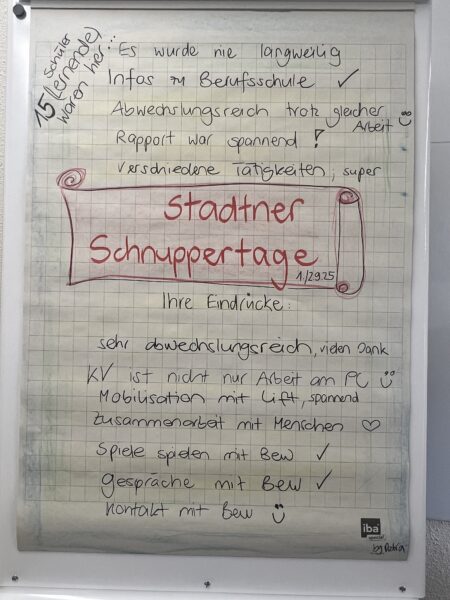 15 Schüler
(Lernende)
waren hier:
Es wurde nie langweilig
Infos zu Berufsschule ✓
Abwechslungsreich trotz gleicher
Arbeit
Rapport war spannend !
Verschiedene Tätigkeiten, super
Stadtner
Schnuppertage
Ihre Eindrücke:
sehr abwechslungsreich, vielen Dank
KV ist nicht nur Arbeit am PC
Mobilisation mit Lift, spannend
Zusammenarbeit mit Menschen ♡
Spiele spielen mit Bew ✓
Gespräche mit Bew ✓
Kontakt mit Bew
iba